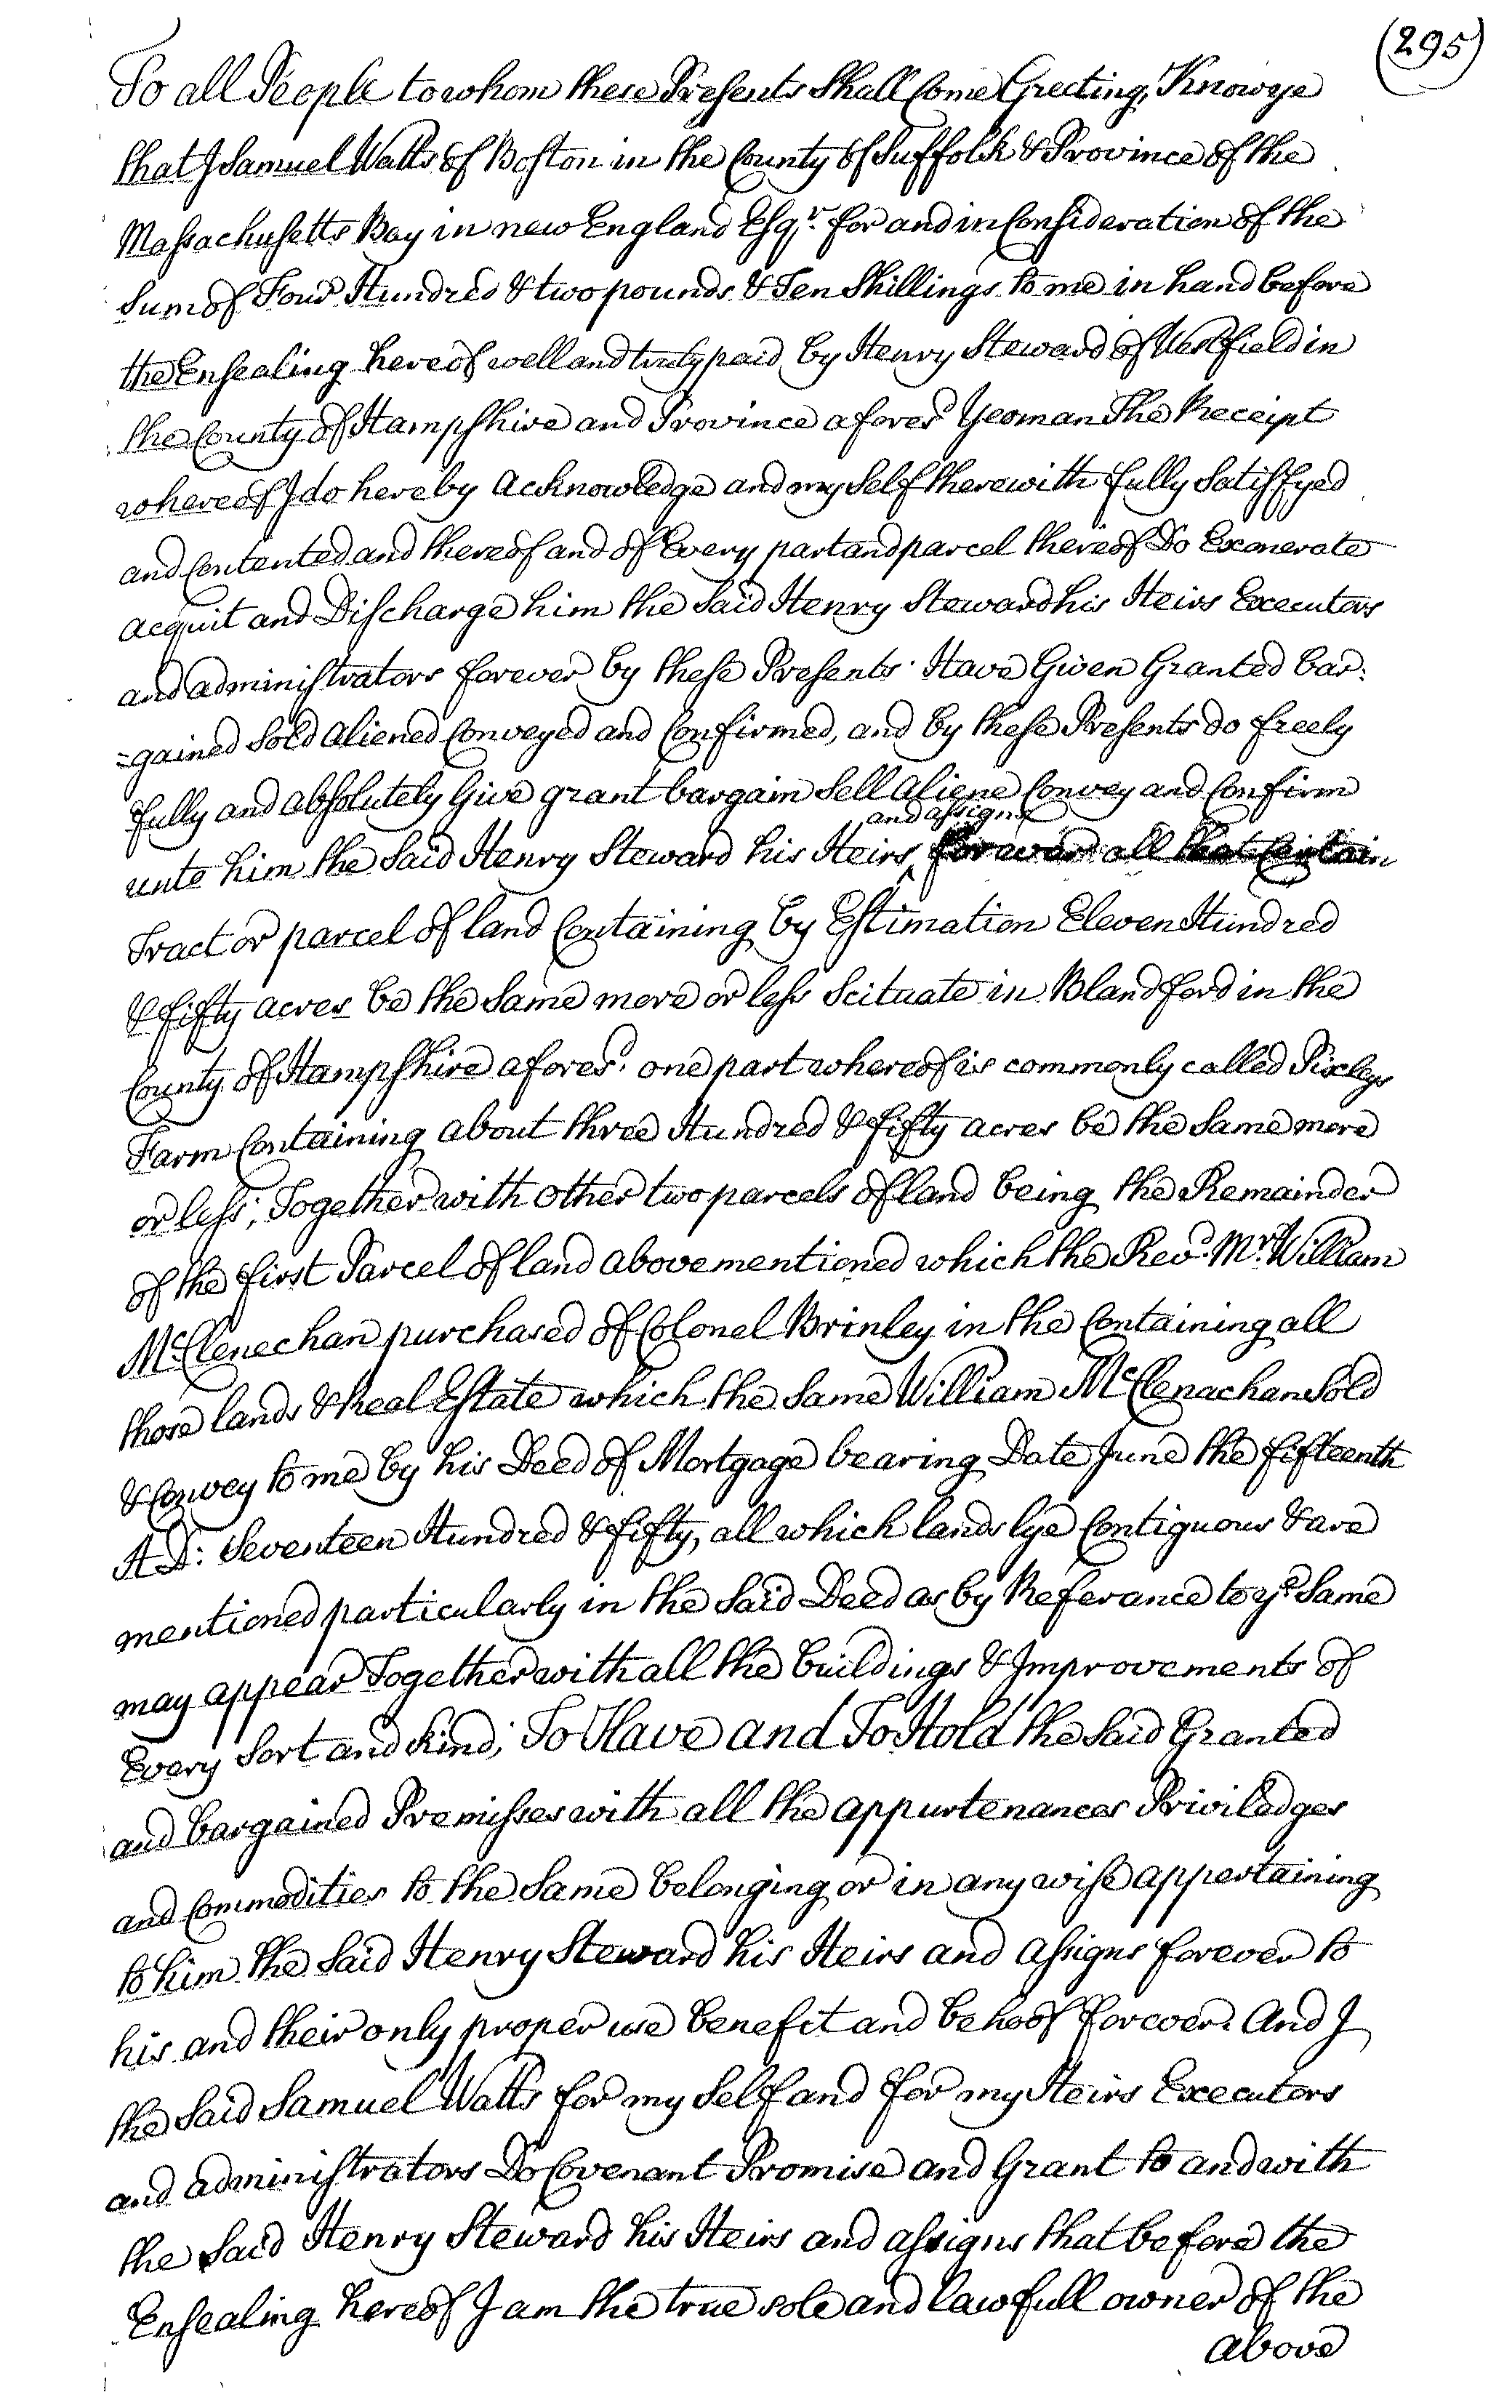 (295)
To all People to whom these Presents Shall Come Greeting, Know ye
that I Samuel Watts of Boston in the County of Suffolk & Province of the
Massachusetts Bay in new England Esqr. for and in Consideration of the
Sum of Four Hundred & two pounds & Ten Shillings to me in hand before
the Ensealing hereof well and truly paid by Henry Steward of Westfield in
the County of Hampshire and Province aforesd Yeoman The Receipt
whereof I do hereby acknowledge and my Self therewith fully Satisfyed
and Contented and thereof and of Every part and parcel thereof Do Exonerate
acquit and Discharge him the Said Henry Steward his Heirs Executors
and administrators forever by these Presents. Have Given Granted bar:
=gained Sold aliened Conveyed and Confirmed, and by these Presents do freely
fully and absolutely Give grant bargain Sell aliene Convey and Confirm
and assigns
unto him the Said Henry Steward his Heirs ‸ forever all that Certain
Tract or parcel of land Containing by Estimation Eleven Hundred
& fifty acres be the Same more or less Scituate in Blandford in the
County of Hampshire aforesd. one part whereof is commonly called Pixleys
Farm Containing about three Hundred & fifty acres be the Same more
or less; Together with other two parcels of land being the Remainder
of the first Parcel of land above mentioned which the Revd. Mr. William
McClenechan purchased of Colonel Brinley in the Containing all
those lands & Real Estate which the Same William McClenachan Sold
& Convey to me by his Deed of Mortgage bearing Date June the fifteenth
A D: Seventeen Hundred & fifty, all which lands lye Contiguous & are
mentioned particularly in the Said Deed as by Referance to ye Same
may appear Together with all the buildings & Improvements of
Every Sort and Kind; To Have and To Hold the Said Granted
and bargained Premisses with all the appurtenances Priviledges
and Commodities to the Same belonging or in any wise appertaining
to him the Said Henry Steward his Heirs and assigns forever to
his and their only proper use benefit and behoof forever. And I
the Said Samuel Watts for my Self and for my Heirs Executors
and administrators Do Covenant Promise and Grant to and with
the Said Henry Steward his Heirs and assigns that before the
Ensealing hereof I am the true sole and lawfull owner of the
above